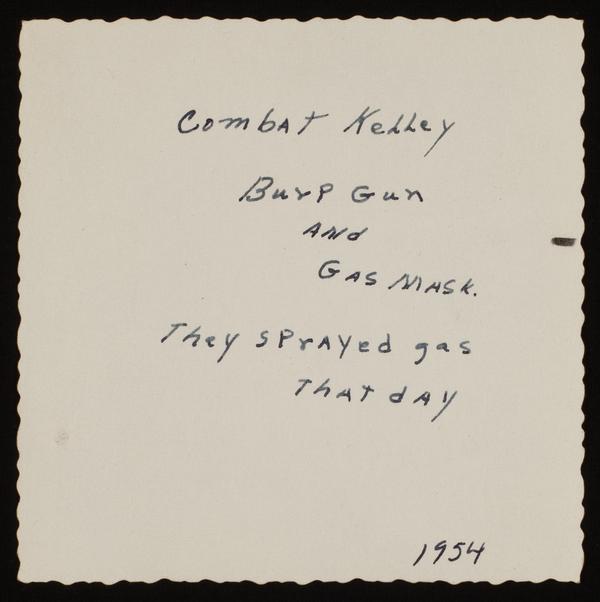 Combat Kelley
Burp Gun
And
Gas Mask.
They sprayed gas
That day
1954